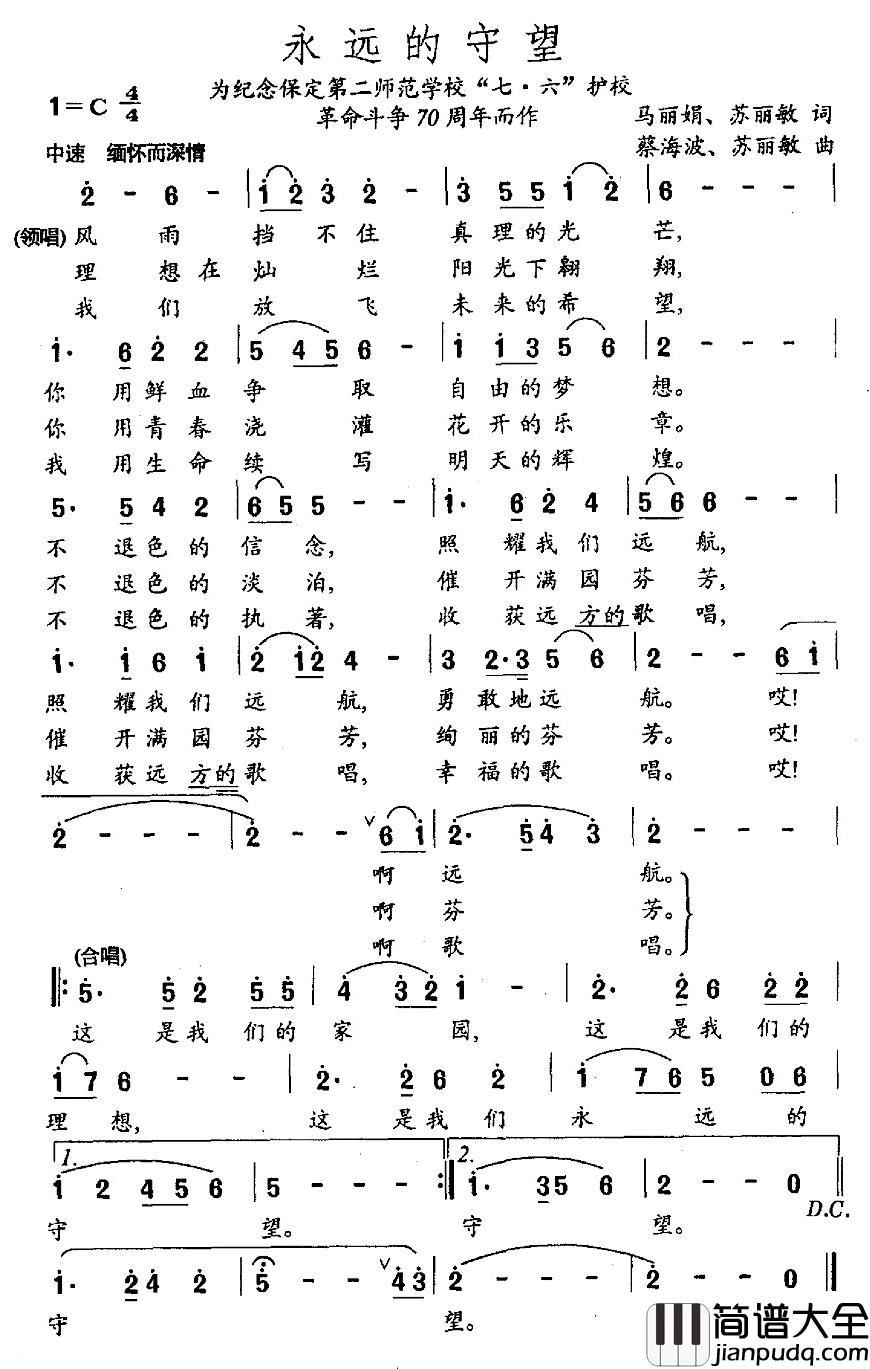 永远的守望
为纪念保定第二师范学校“七·六”护校
革命斗争70周年而作
1=C 4/4
马丽娟、苏丽敏 词
中速 缅怀而深情
蔡海波、苏丽敏 曲
2̇ - 6 - | 1̇ 2̇ 3̇ 2̇ - | 3̇ 5 5 1̇ 2̇ | 6 - - - |
(领唱) 风 雨 挡 不 住 真 理 的 光 芒,
理 想 在 灿 烂 阳 光 下 翱 翔,
我 们 放 飞 未 来 的 希 望,
1̇· 6 2̇ 2 | 5 4 5 6 - | 1̇ 1̇ 3 5 6 | 2 - - - |
你 用 鲜 血 争 取 自 由 的 梦 想。
你 用 青 春 浇 灌 花 开 的 乐 章。
我 用 生 命 续 写 明 天 的 辉 煌。
5· 5 4 2 | 6 5 5 - - | 1̇· 6 2̇ 4 | 5 6 6 - - |
不 退 色 的 信 念, 照 耀 我 们 远 航,
不 退 色 的 淡 泊, 催 开 满 园 芬 芳,
不 退 色 的 执 著, 收 获 远 方 的 歌 唱,
1̇· 1̇ 6 1̇ | 2̇ 1̇ 2̇ 4 - | 3 2·3 5 6 | 2 - - 6 1̇ |
照 耀 我 们 远 航, 勇 敢 地 远 航。 哎!
催 开 满 园 芬 芳, 绚 丽 的 芬 芳。 哎!
收 获 远 方 的 歌 唱, 幸 福 的 歌 唱。 哎!
2̇ - - - | 2̇ - - ∨ 6 1̇ | 2̇· 5̇ 4̇ 3̇ | 2̇ - - - |
啊 远 航。
啊 芬 芳。
啊 歌 唱。
(合唱)
‖: 5̇· 5̇ 2̇ 5̇ 5̇ | 4̇ 3̇ 2̇ 1̇ - | 2̇· 2̇ 6 2̇ 2̇ |
这 是 我 们 的 家 园, 这 是 我 们 的
1̇ 7 6 - - | 2̇· 2̇ 6 2̇ | 1̇ 7 6 5 0 6 |
理 想, 这 是 我 们 永 远 的
1. 2.
1̇ 2 4 5 6 | 5 - - - :‖ 1̇· 3 5 6 | 2 - - 0 ‖
D.C.
守 望。 守 望。
1̇· 2̇ 4̇ 2̇ | 5̇ - - ∨ 4̇ 3̇ | 2̇ - - - | 2̇ - - 0 ‖
守 望。
简谱大全
jianpudq.com